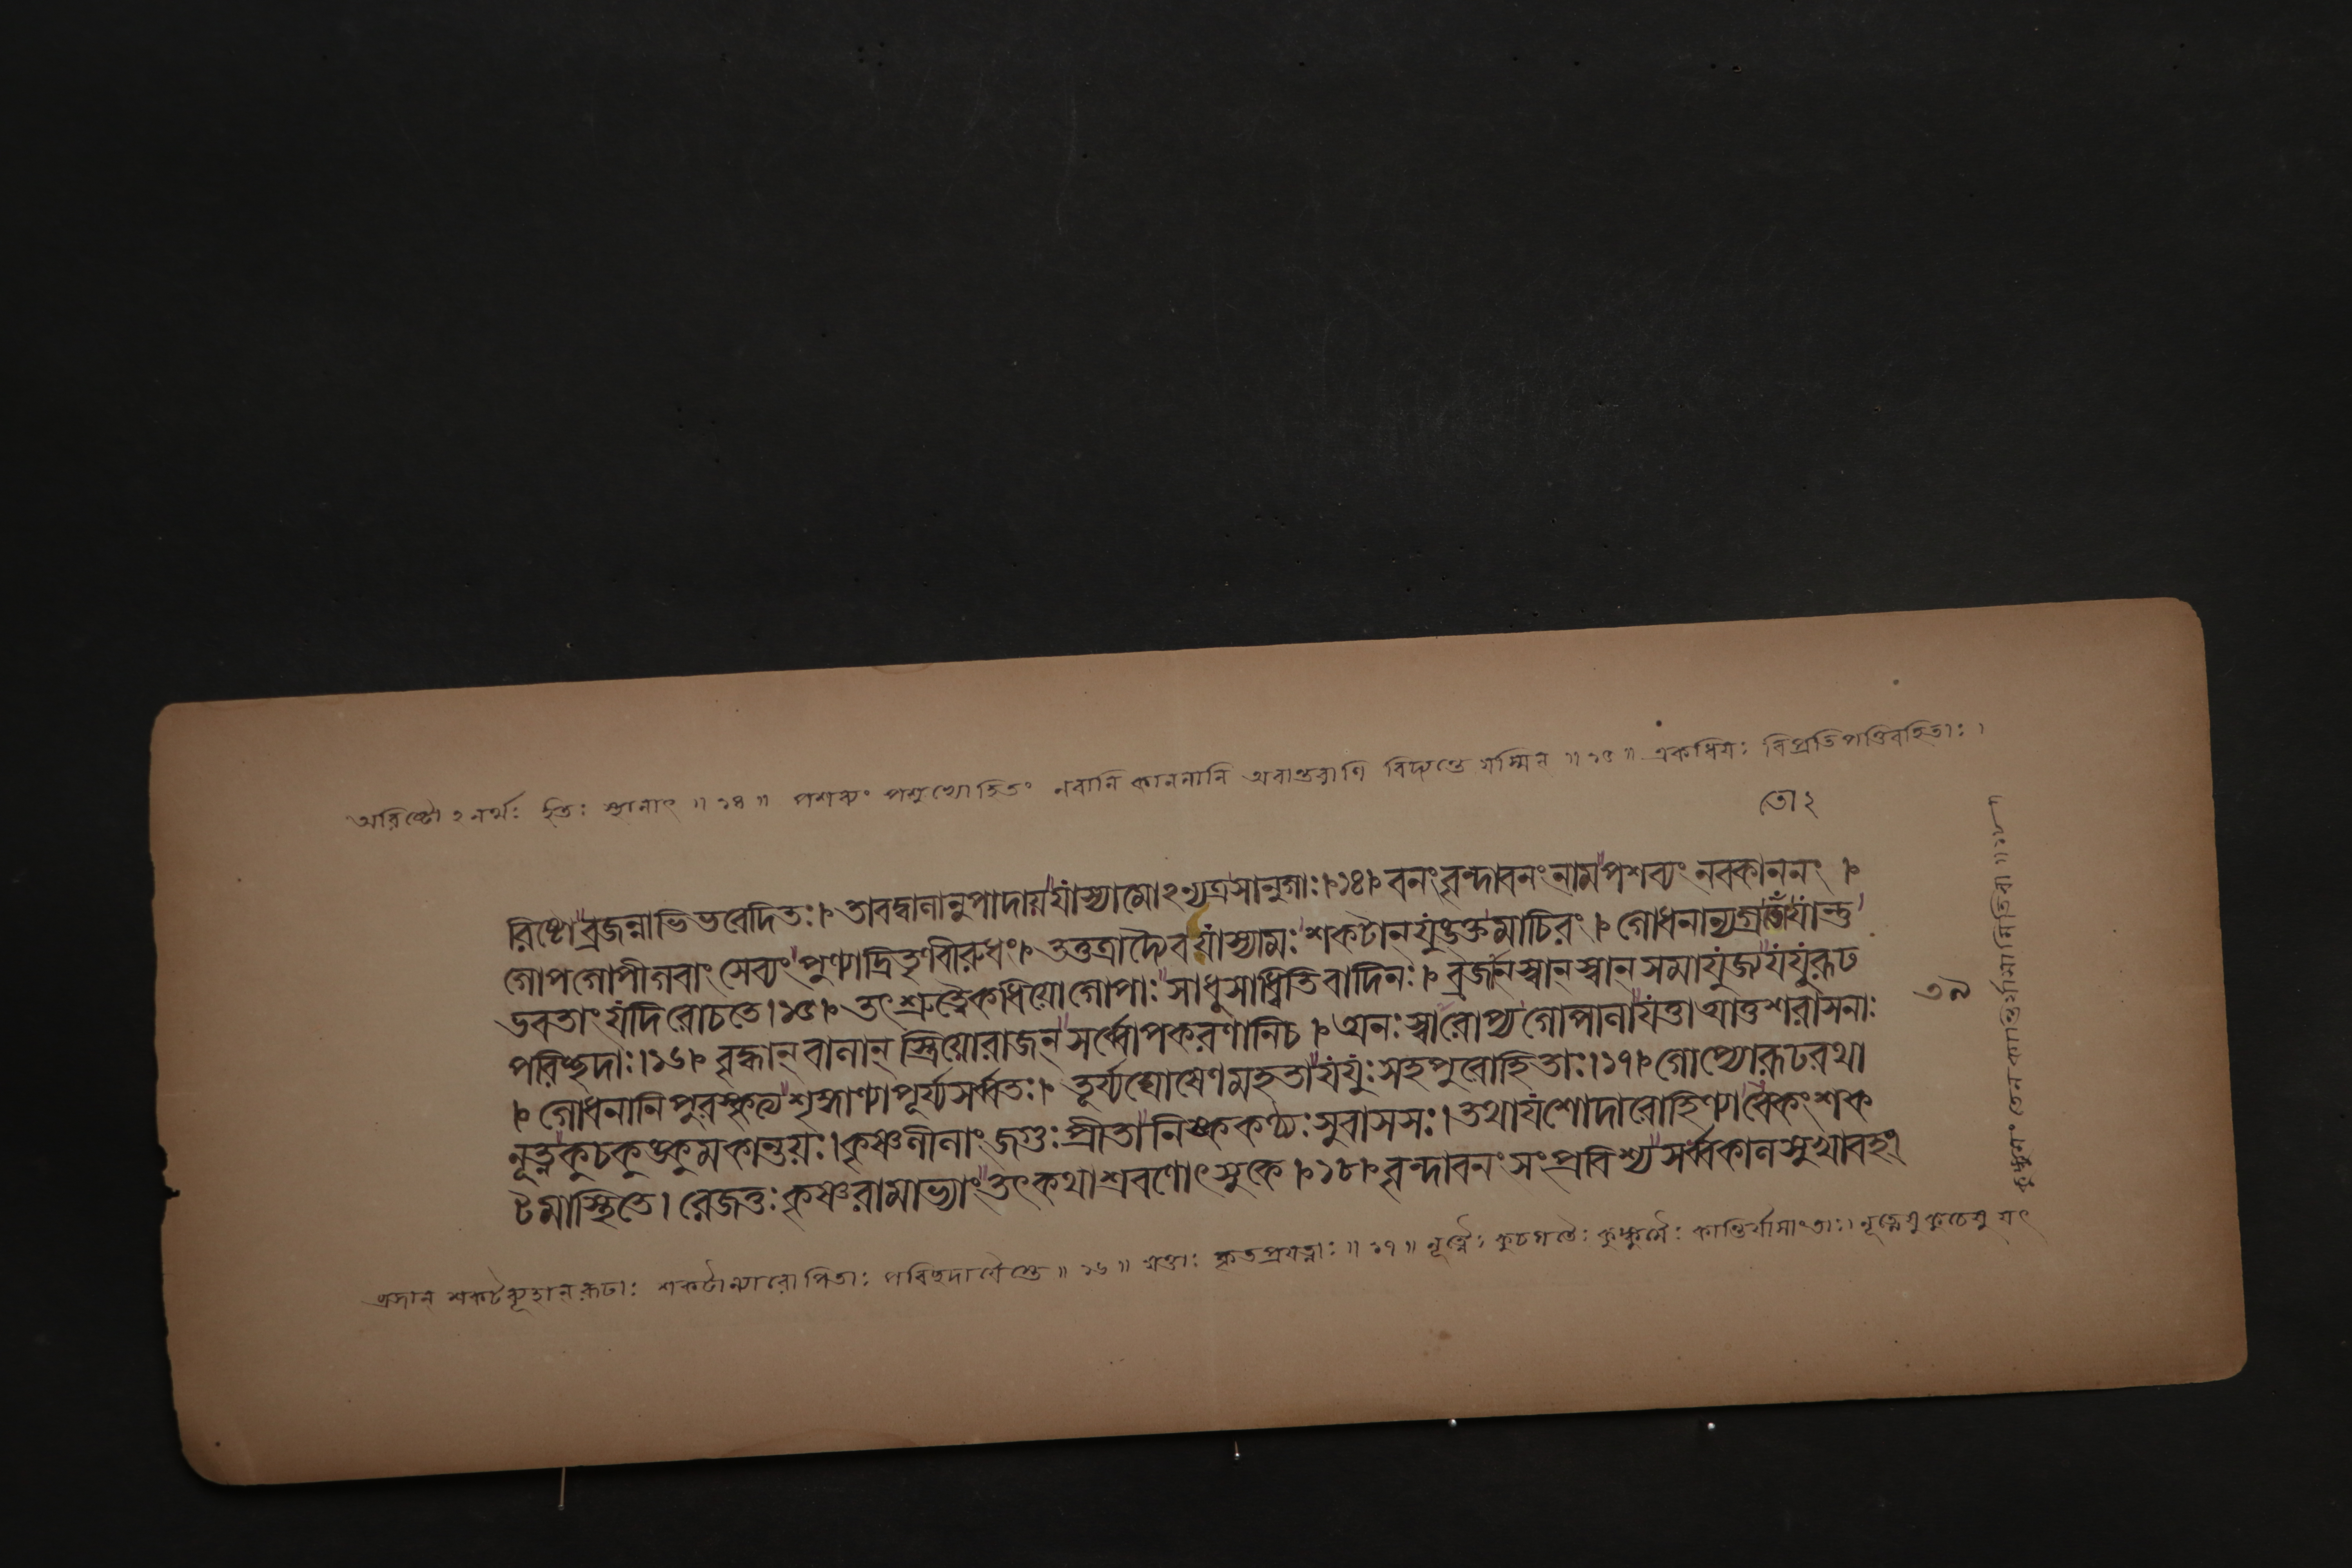 অরিষ্টোঽনর্থঃ ইতিঃ স্থানাৎ ॥ ১৪ ॥ পশব্যং পশুভ্যোহিতং নবানি কাননানি অবান্তরাণি বিদ্যন্তে যস্মিন ॥ ১৫ ॥ একধিয়ঃ বিপ্রতিপত্তিরহিতাঃ ।
তোঽ
রিষ্টোব্রজন্নাভিভবেদিতঃ। তাবদ্বালানুপাদায়যাস্যামোঽন্যত্রসানুগাঃ।১৪। বনংবৃন্দাবনংনামপশব্যংনবকাননং ।
গোপগোপীগবাংসেব্যংপুণ্যাদ্রিতৃণবীরুধং। তত্তত্রাদ্যৈবযাস্যামঃশকটানযুঙ্ক্তমাচিরং । গোধনান্যগ্রতোযান্তু
ভবতাংযদিরোচতে।১৫। তৎশ্রুত্বৈকধিয়োগোপাঃসাধুসাধ্বিতিবাদিনঃ। ব্রজানস্বানস্বানসমাযুজ্যযযুরূঢ
পরিচ্ছদাঃ।১৬। বৃদ্ধানবালান্ স্ত্রিয়োরাজনসর্ব্বোপকরণানিচ । অনঃস্বারোপ্যগোপালাযত্তাআত্তশরাসনাঃ
। গোধনানিপুরস্কৃত্যশৃঙ্গাণ্যাপূর্য্যসর্ব্বতঃ। তূর্য্যঘোষেণমহতাযযুঃসহপুরোহিতাঃ।১৭। গোপ্যোরূঢরথা
নূত্নকুচকুঙ্কুমকান্তয়ঃ।কৃষ্ণলীলাংজগুঃপ্রীতানিষ্ককণ্ঠ্যঃসুবাসসঃ। তথাযশোদারোহিণ্যাবেকংশক
টমাস্থিতে। রেজতুঃকৃষ্ণরামাভ্যাংতৎকথাশ্রবণোৎসুকে ।১৮। বৃন্দাবনংসংপ্রবিশ্যসর্ব্বকালসুখাবহং
৩৯
ব্রজান শকটব্যূহান রূঢাঃ শকটান্যারোপিতাঃ পরিচ্ছদা যৈস্তে ॥ ১৬ ॥ যত্তাঃ কৃতপ্রযত্নাঃ ॥ ১৭ ॥ নূত্নৈঃ কুচগতৈঃ কুঙ্কুমৈঃ কান্তির্যাসাং তাঃ। নূত্নেষু কুচেষু যৎ
কুঙ্কুমং তেন কান্তির্যাসামিতিবা ॥ ১৮ ॥